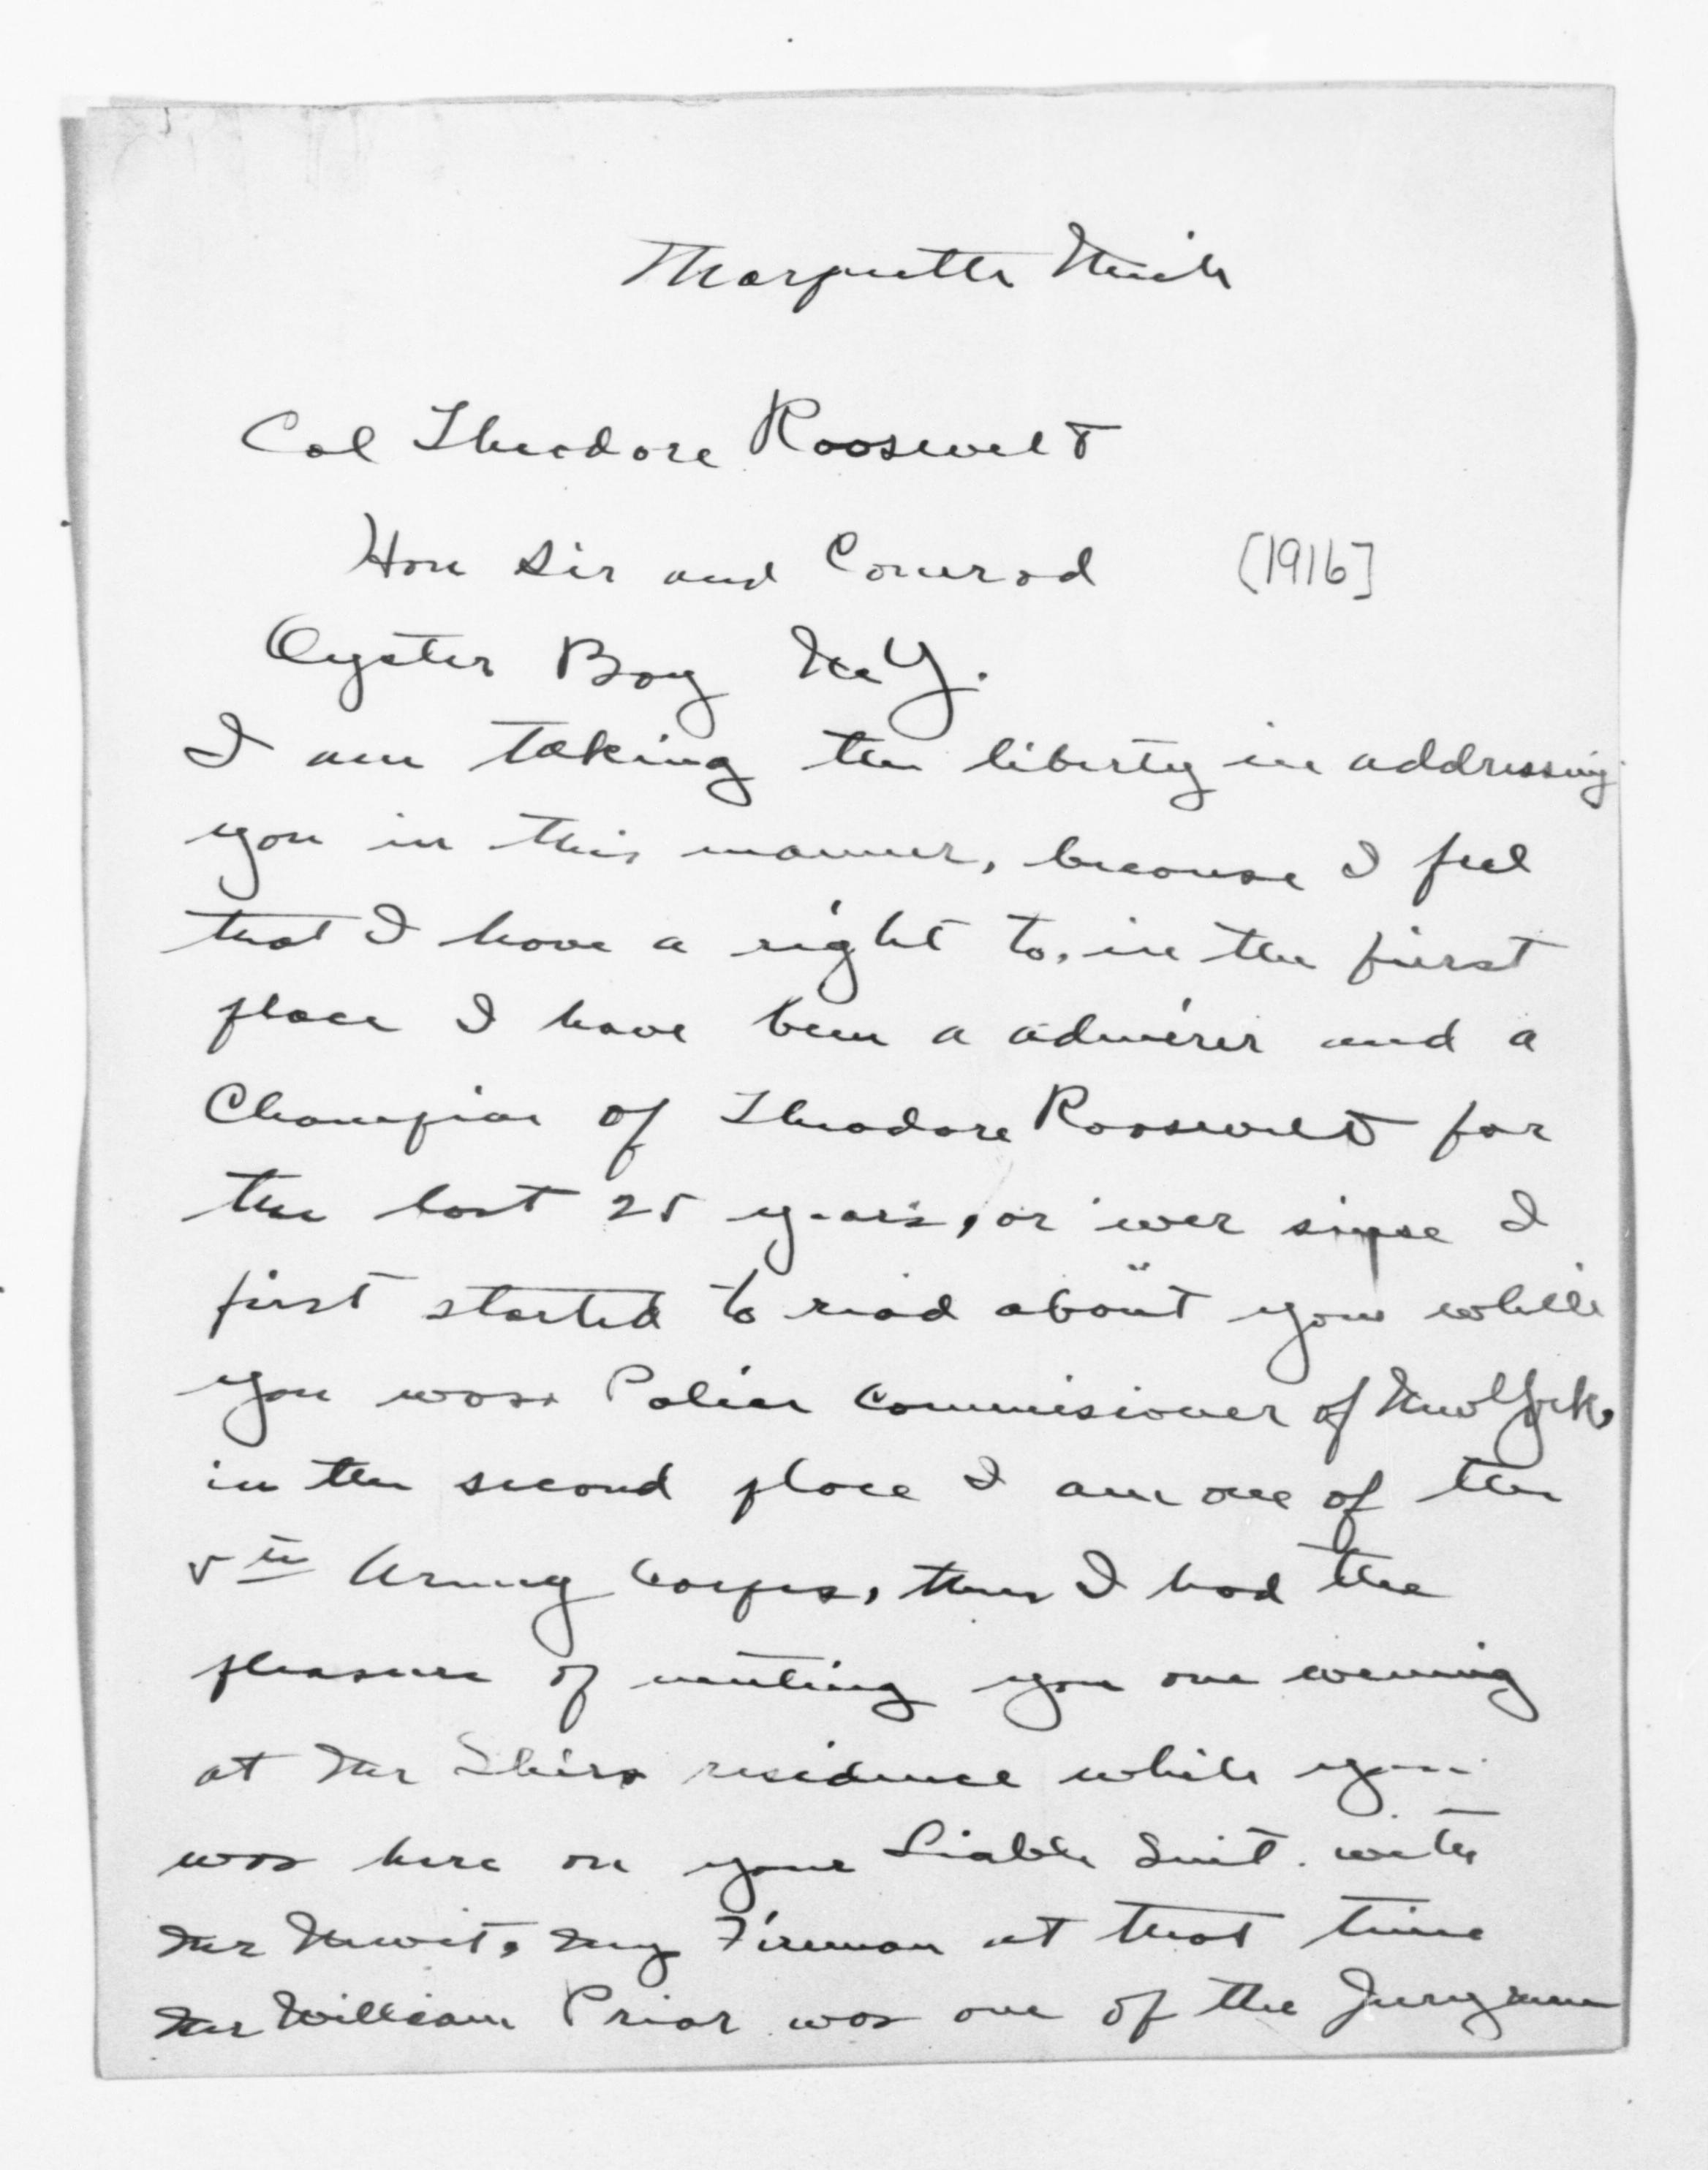 Marquette Mich
Col Theodore Roosevelt
Hon Sir and Comrad [1916]
Oyster Bay N.Y.
I am taking the liberty in addressing
you in this manner, because I feel
that I have a right to, in the first
place I have been a admirer and a
Champion of Theodore Roosevelt for
the last 25 years, or ever sinse I
first started to read about you while
you was Police Commisioner of New York,
in the second place I am one of the
5th Army Corps, then I had the
pleasure of meeting you one evening
at Mr Shiras residence while you
was here on your Liable Suit. with
Mr Newet, my Fireman at that time
Mr William Prior was one of the Jurymen